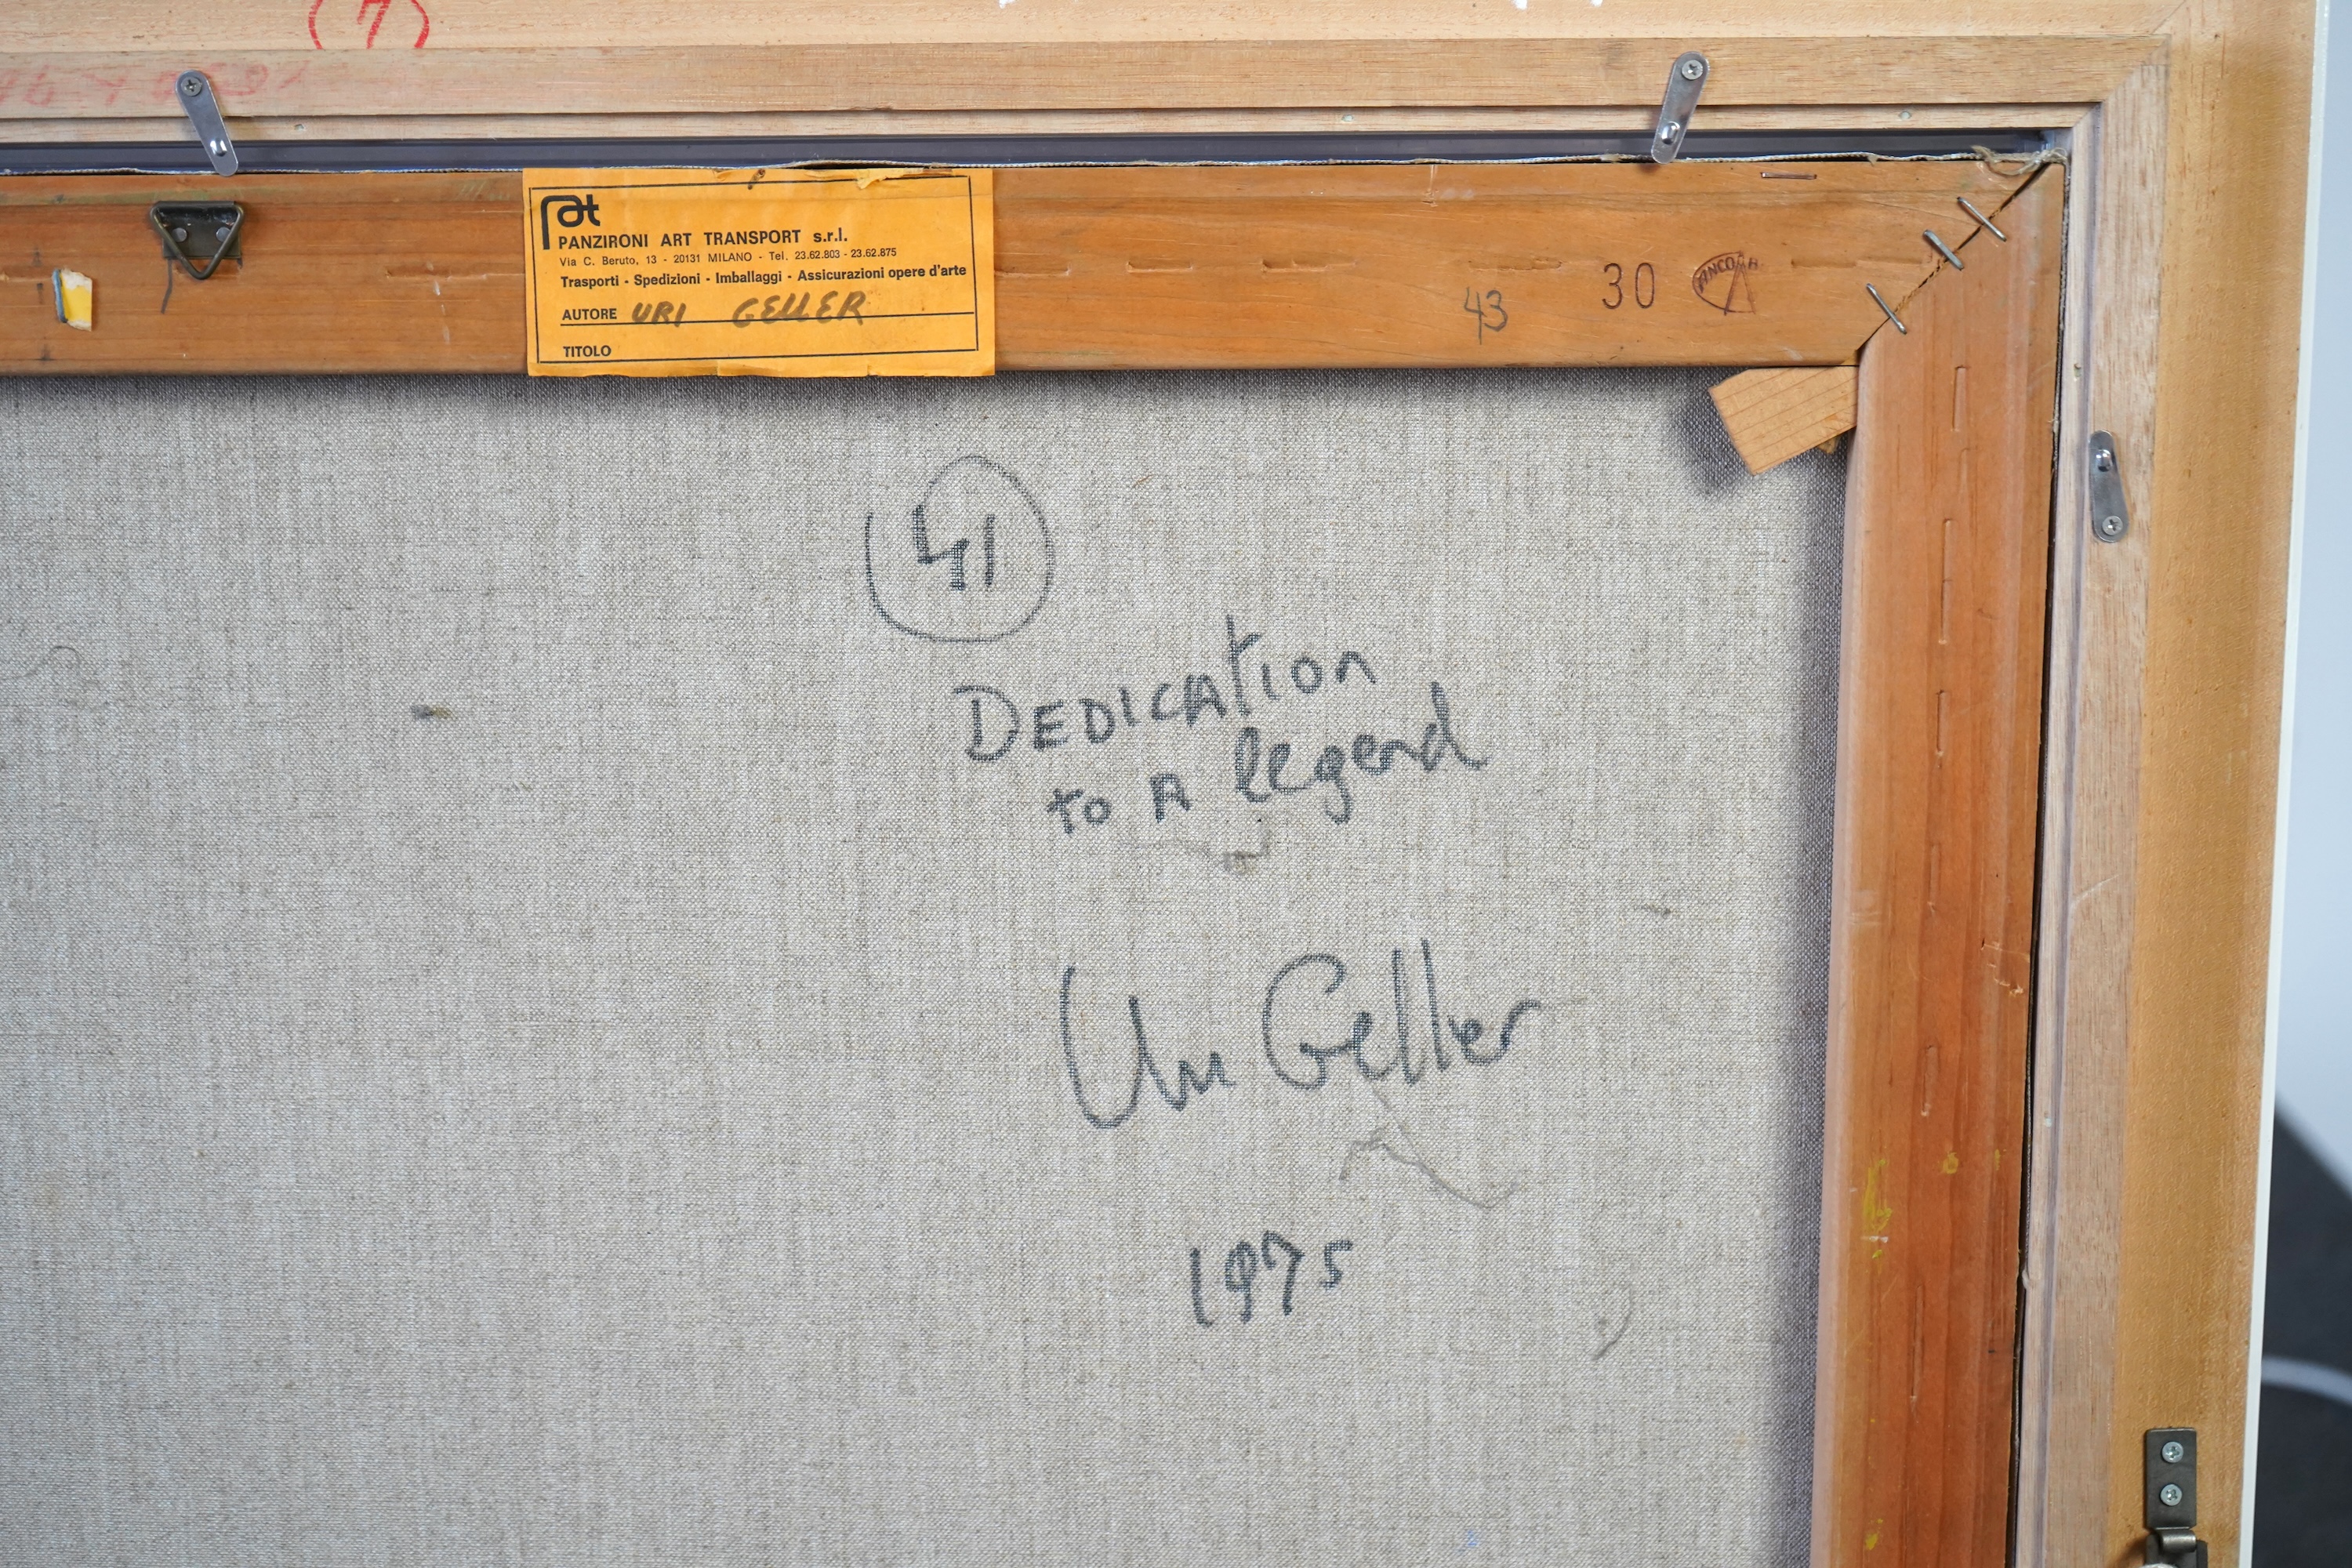 7
at
PANZIRONI ART TRANSPORT s.r.l.
Via C. Beruto, 13 - 20131 MILANO - Tel. 23.62.803 - 23.62.875
Trasporti - Spedizioni - Imballaggi - Assicurazioni opere d'arte
AUTORE URI GELLER
TITOLO
43
30
41
DEDICAtion
to A legend
Uri Geller
1975